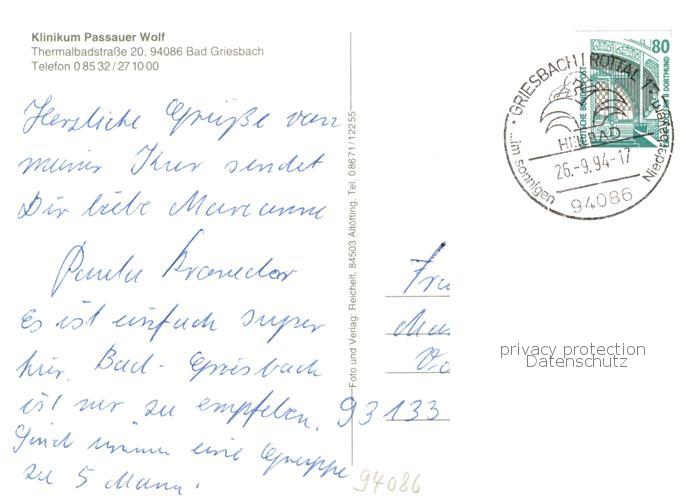 Klinikum Passauer Wolf
Thermalbadstraße 20, 94086 Bad Griesbach
Telefon 0 85 32 / 27 10 00
Herzliche Grüße von
meiner Kur sendet
Dir liebe Marianne
Paula
Es ist einfach super
hier. Bad-Griesbach
ist nur zu empfehlen.
Sind immer eine Gruppe
zu 5 Mann.
Foto und Verlag: Reichelt, 84503 Altötting, Tel. 08671/12255
80
DEUTSCHE BUNDESPOST
DORTMUND
GRIESBACH I ROTTAL 1
HEILBAD
26.-9.94-17
...im sonnigen Niederbayern
94086
93133
94086
privacy protection
Datenschutz